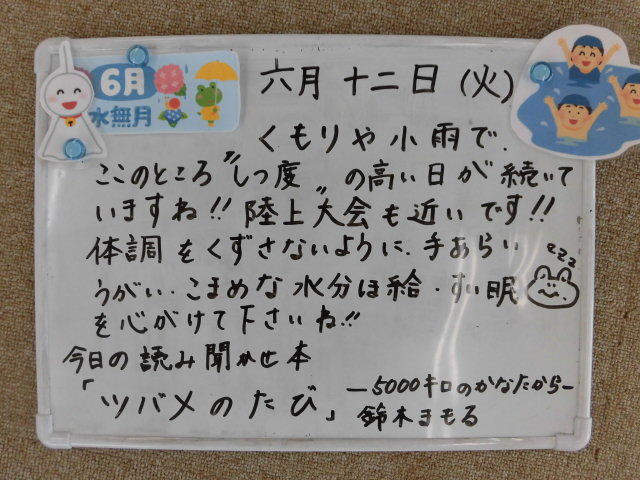 6月
水無月
六月十二日(火)
くもりや小雨で、
ここのところ〝しつ度〟の高い日が続いて
いますね!!陸上大会も近いです!!
体調をくずさないように、手あらい
うがい・こまめな水分ほ給・すい眠
zzz
を心がけて下さいね!!
今日の読み聞かせ本
「ツバメのたび」
―5000キロのかなたから―
鈴木まもる